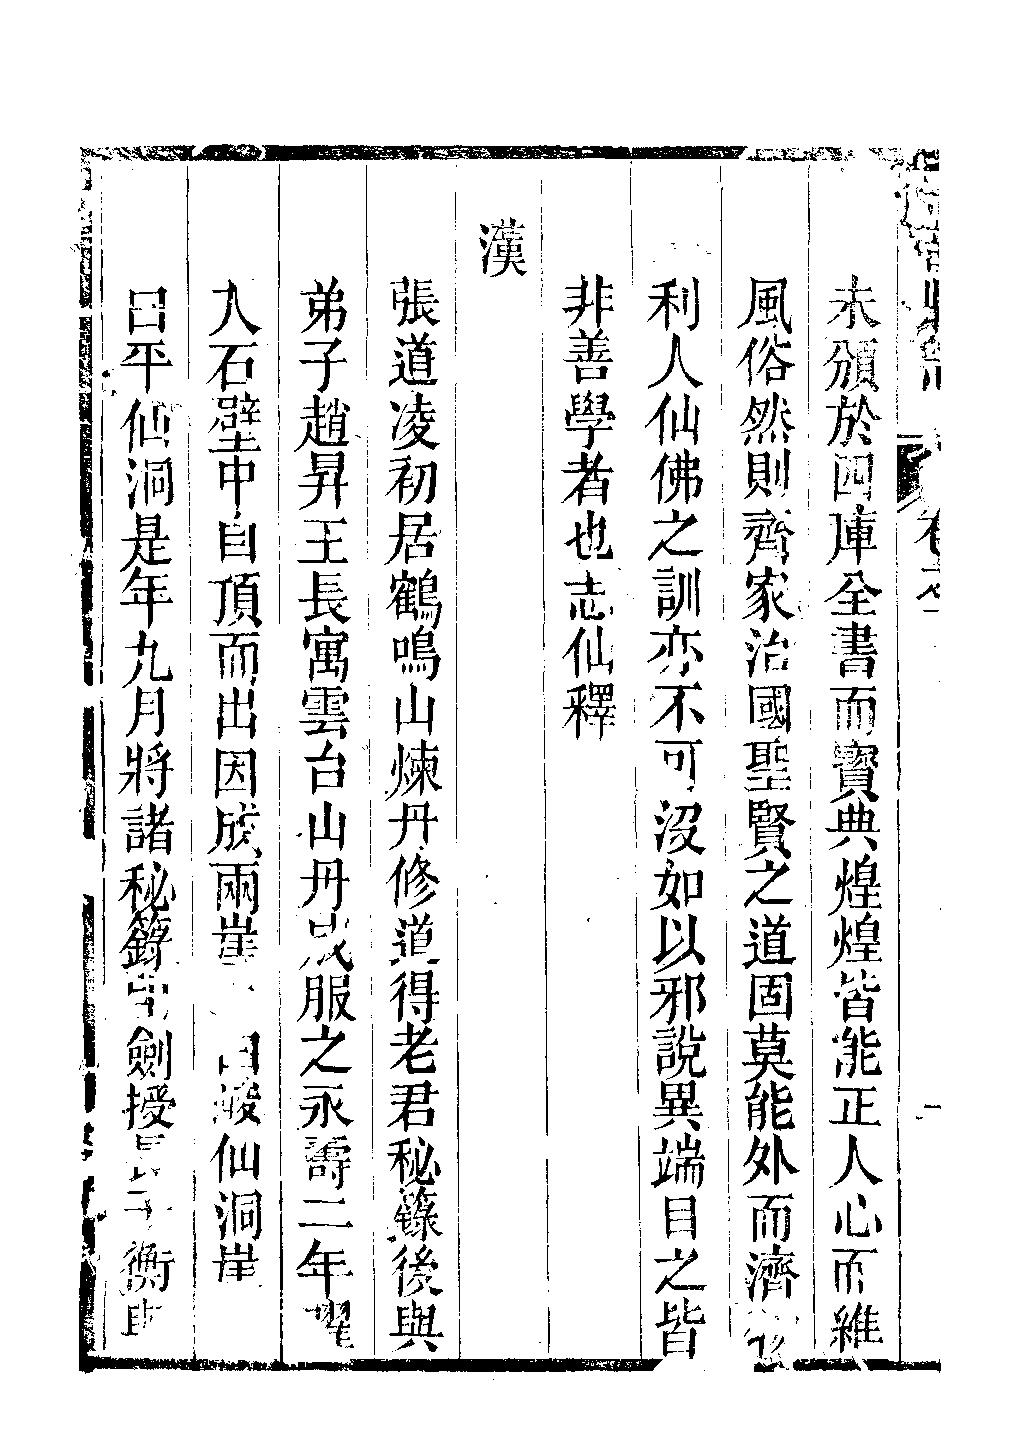 未頒於四庫全書而寶典煌煌皆能正人心而維
風俗然則齊家治國聖賢之道固莫能外而濟
利人仙佛之訓亦不可沒如以邪說異端目之皆
非善學者也志仙釋
漢
張道凌初居鶴鳴山煉丹修道得老君秘籙後與
弟子趙昇王長寓雲台山丹成服之永壽二年躍
入石壁中自頂而出因成兩崖
曰峻仙洞崖
曰平仙洞是年九月將諸秘籙
劍授長子衡與